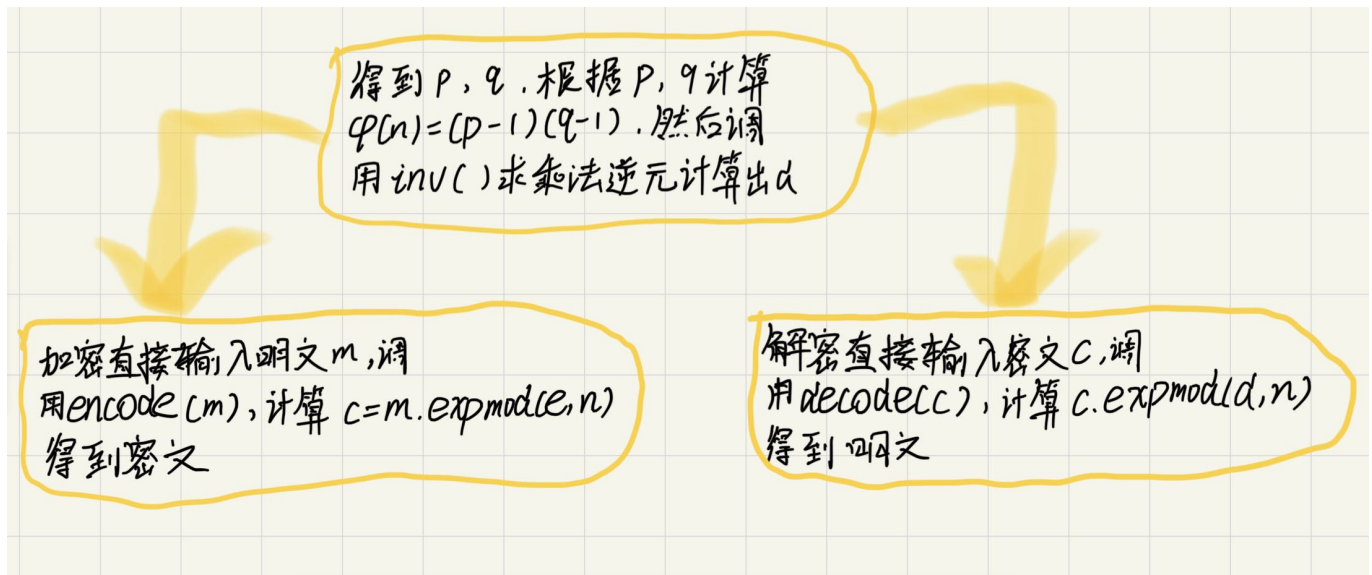 得到p,q.根据p,q计算
φ(n)=(p-1)(q-1).然后调
用inv()求乘法逆元计算出d
加密直接输入明文m,调
用encode(m),计算 c=m.expmod(e,n)
得到密文
解密直接输入密文c,调
用decode(c),计算 c.expmod(d,n)
得到明文